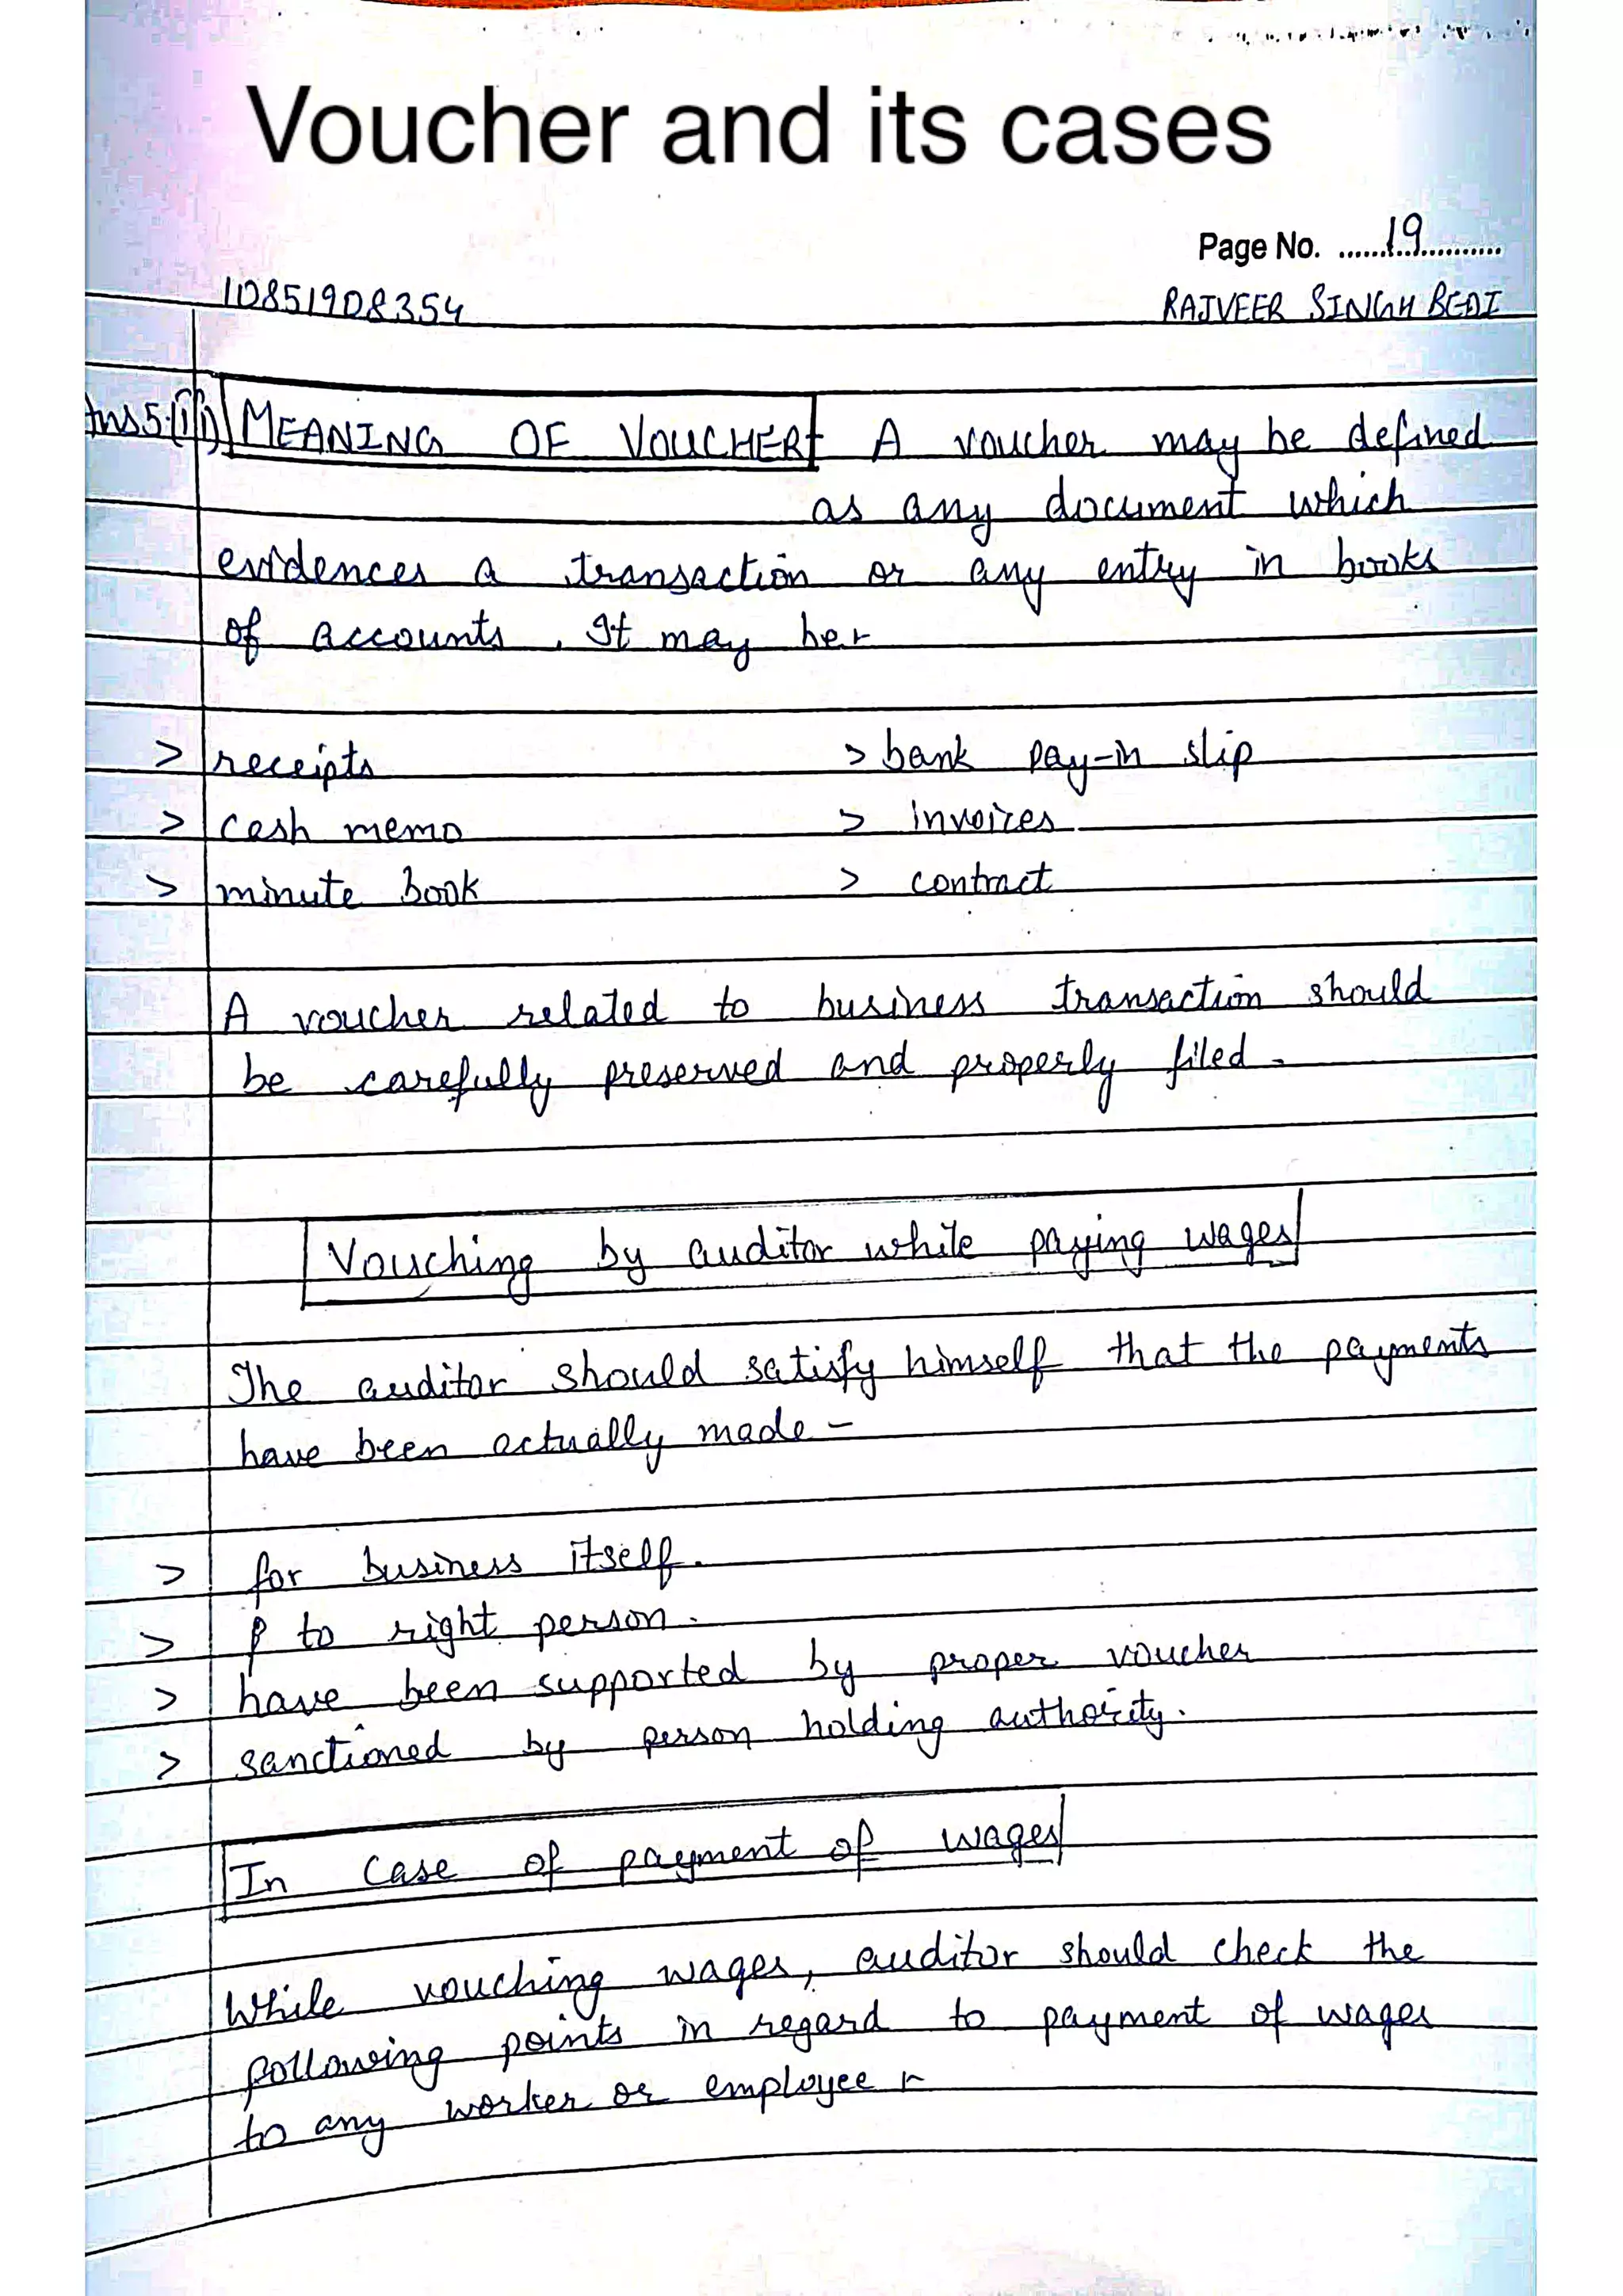 Voucher and its cases
Page No. ......19............
10851908354
RAJVEER SINGH BEDI
Ans 5.(ii) MEANING OF VOUCHER A voucher may be defined
as any document which
evidences a transaction or any entry in books
of accounts. It may be:-
> receipts > bank pay-in slip
> cash memo > invoices
> minute book > contract
A voucher related to business transaction should
be carefully preserved and properly filed.
Vouching by auditor while paying wages
The auditor should satisfy himself that the payments
have been actually made -
> for business itself.
> to right person.
> have been supported by proper voucher
> sanctioned by person holding authority.
In case of payment of wages
While vouching wages, auditor should check the
following points in regard to payment of wages
to any worker or employee :-